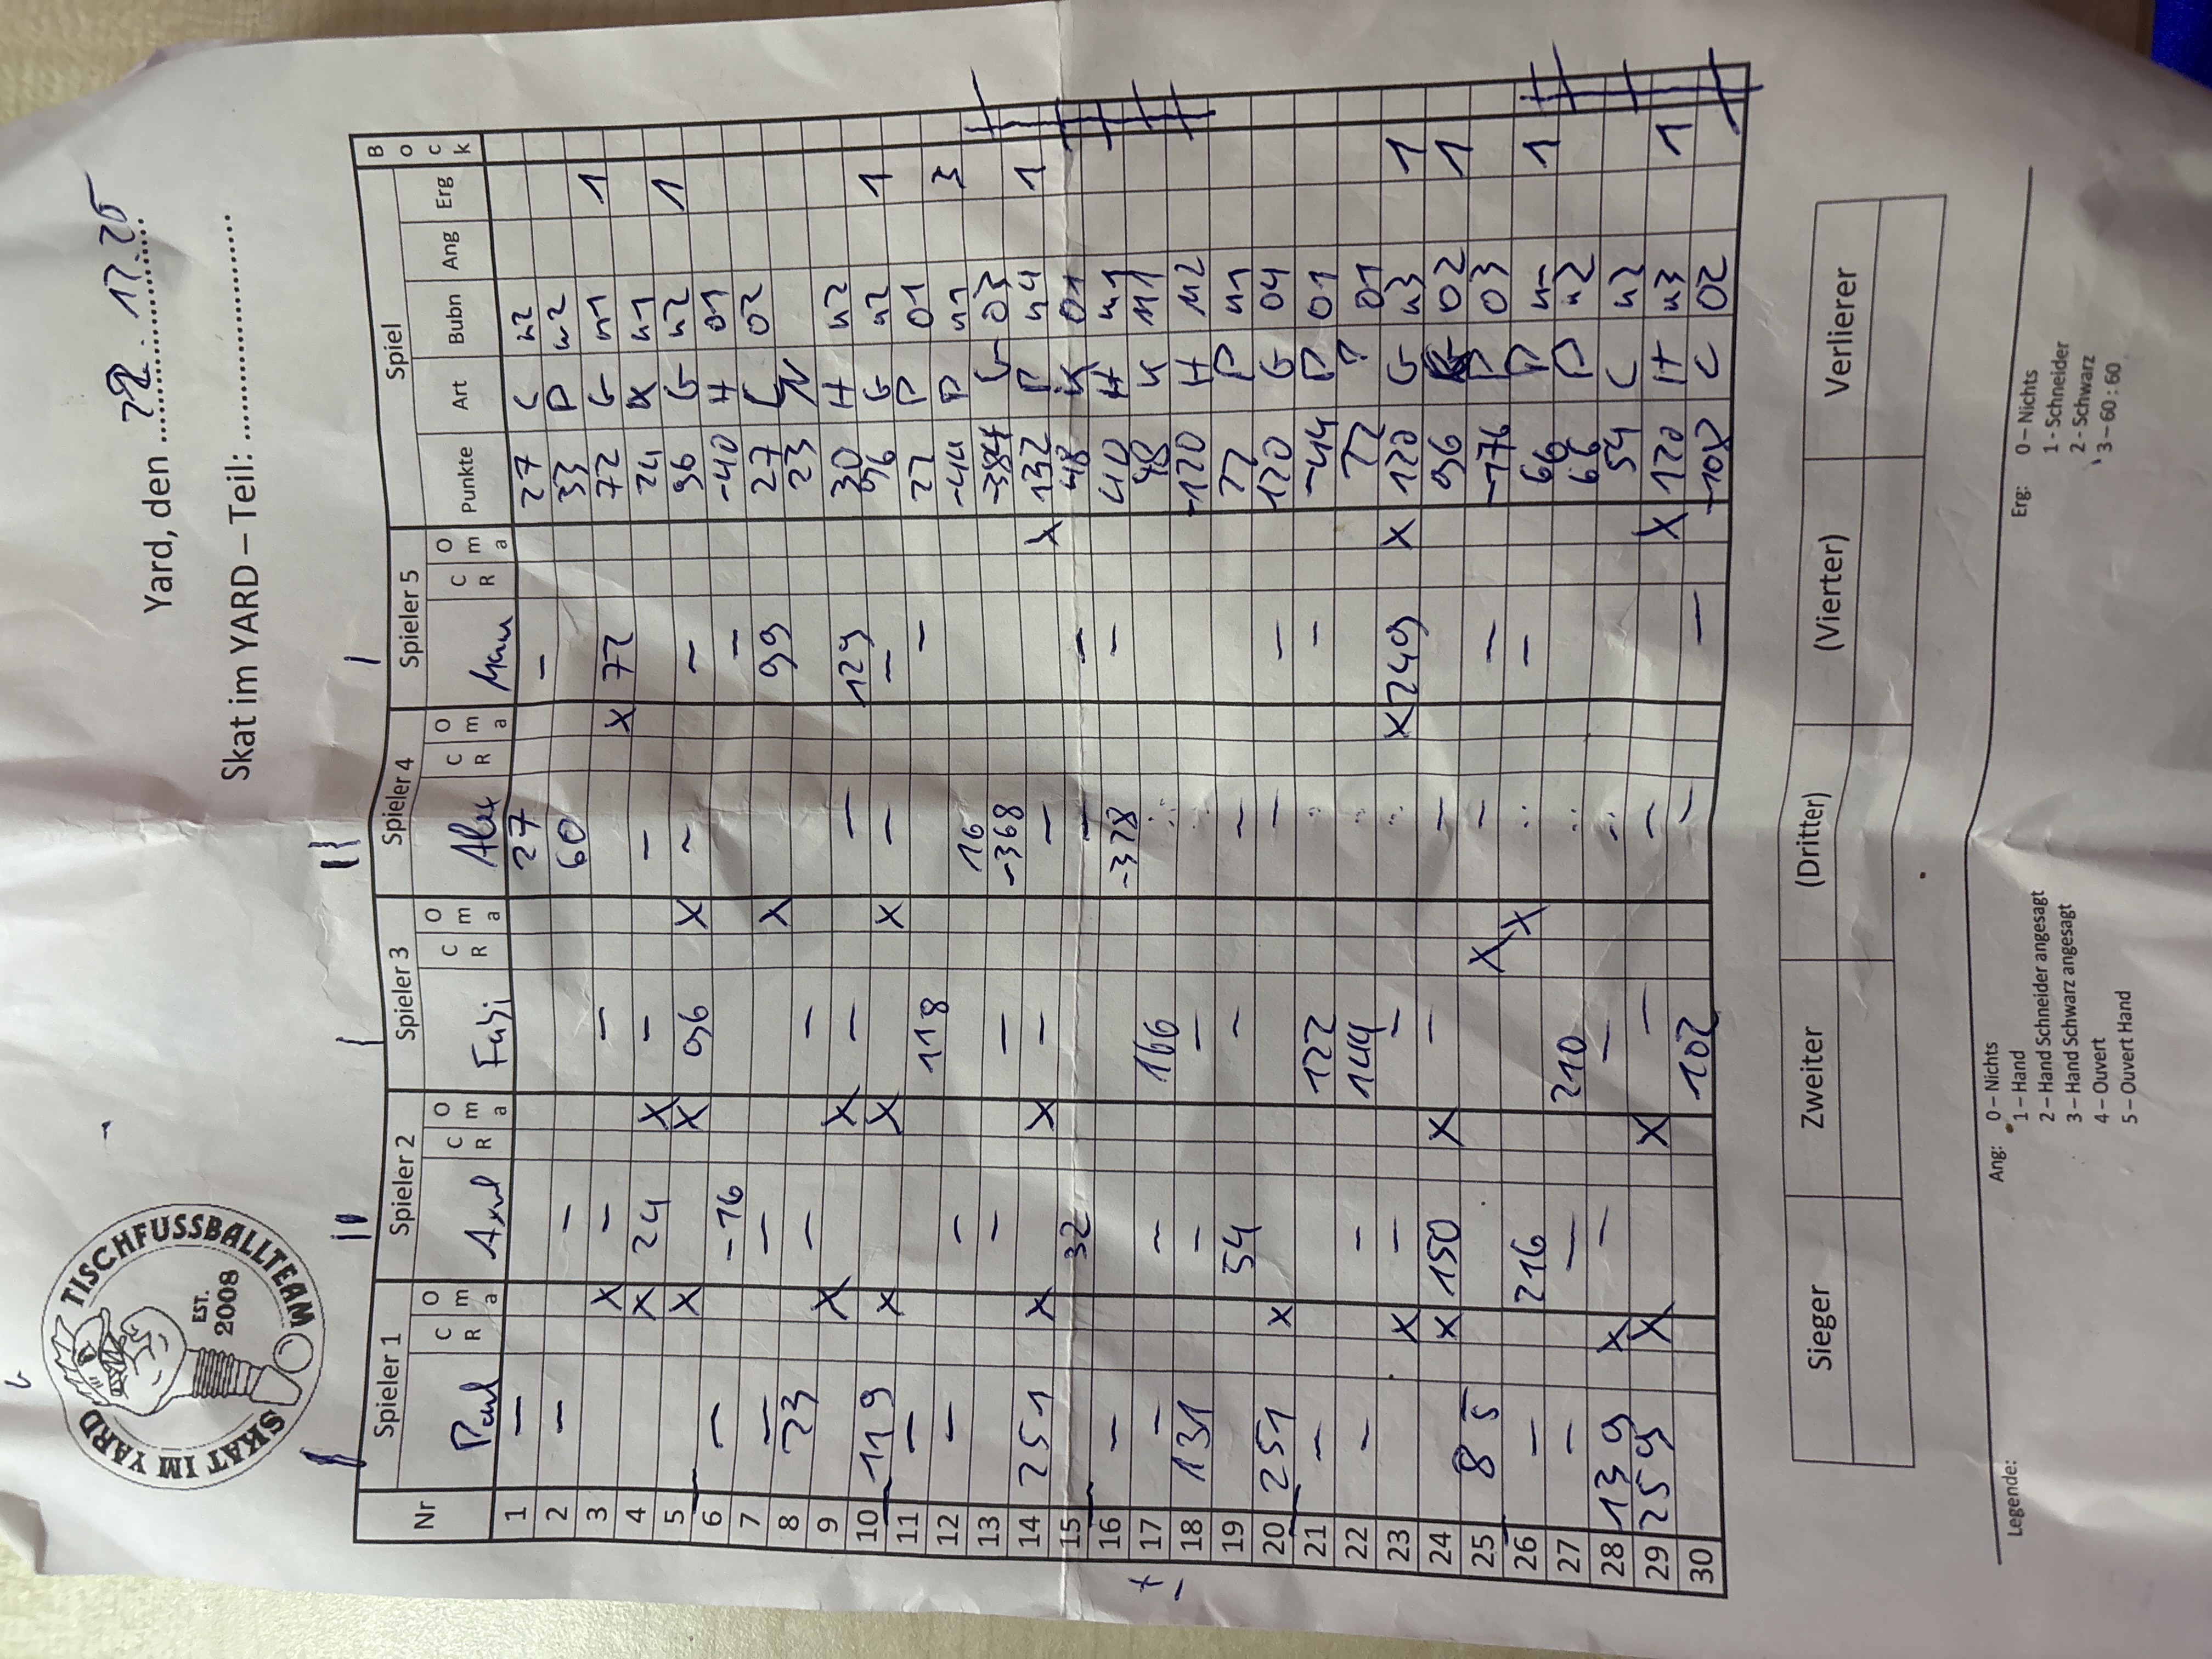 Yard, den 28.12.25
Skat im YARD – Teil:
TISCHFUSSBALLTEAM
SKAT IM YARD
EST.
2008
Nr Spieler 1 Spieler 2 Spieler 3 Spieler 4 Spieler 5 Spiel Bock
Paul C R O m a Axel C R O m a Fabi C R O m a Alex C R O m a C R O m a Punkte Art Bubn Ang Erg
1 – 27 – 27 C u2
2 – – 60 33 P u2
3 X – – X 72 72 G u1 1
4 X 24 X – – 24 K u1
5 X X 96 X – – 96 G u2 1
6 – -16 – -40 H 01
7 – – X 99 27 C 02
8 23 – – 23 N
9 X X – – 129 30 H u2
10 119 X X X – – 96 G u2 1
11 – 118 – 22 P 01
12 – – 16 -44 P u1 3
13 – – -368 -384 G 03
14 251 X X – – X 132 P u4 1
15 32 – – 48 K 01
16 – -328 – 40 H u1
17 – – 166 48 K u1
18 131 – – -120 H u2
19 54 – – 22 P u1
20 251 X – – 120 G 04
21 – 122 – -44 P 01
22 – – 144 22 P 01
23 X – – X 249 X 120 G u3 1
24 X 150 X – – 96 G 02 1
25 85 X – – -176 P 03
26 – 216 X – 66 P u 1
27 – – 210 66 P u2
28 139 X – – 54 C u2
29 259 X X – – X 120 H u3 1
30 102 – – -108 C 02
Sieger Zweiter (Dritter) (Vierter) Verlierer
Legende:
Ang: 0 – Nichts
1 – Hand
2 – Hand Schneider angesagt
3 – Hand Schwarz angesagt
4 – Ouvert
5 – Ouvert Hand
Erg: 0 – Nichts
1 - Schneider
2 - Schwarz
3 – 60 : 60